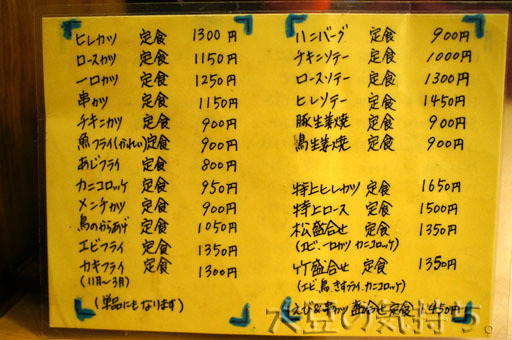 ヒレカツ 定食 1300円
ロースカツ 定食 1150円
一口カツ 定食 1250円
串カツ 定食 1150円
チキンカツ 定食 900円
魚フライ(かれい)定食 900円
あじフライ 定食 800円
カニコロッケ 定食 950円
メンチカツ 定食 900円
鳥のからあげ 定食 1050円
エビフライ 定食 1350円
カキフライ 定食 1300円
(11月〜3月)
(単品にもなります)
ハンバーグ 定食 900円
チキンソテー 定食 1000円
ロースソテー 定食 1300円
ヒレソテー 定食 1450円
豚生姜焼 定食 900円
鳥生姜焼 定食 900円
特上ヒレカツ 定食 1650円
特上ロース 定食 1500円
松盛合せ 定食 1350円
(エビ、一口カツ カニコロッケ)
竹盛合せ 定食 1350円
(エビ、鳥、きすフライ、カニコロッケ)
えび&串カツ 盛合せ定食 1450円
大豆の気持ち。